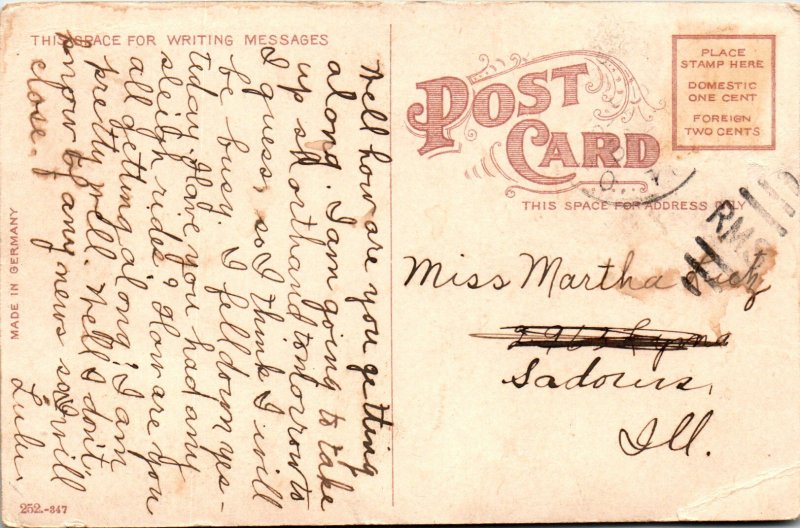 THIS SPACE FOR WRITING MESSAGES
Well how are you getting
along. I am going to take
up shorthand tomorrow to
I guess, so I think I will
be busy. I fell down yes-
today. Have you had any
sleigh rides? How are you
all getting along; I am
pretty well. Well I don't
know of any news so will
close.
Lulu.
MADE IN GERMANY
252.-347
POST CARD
THIS SPACE FOR ADDRESS ONLY
PLACE
STAMP HERE
DOMESTIC
ONE CENT
FOREIGN
TWO CENTS
RMS
Miss Martha
Sadorus,
Ill.